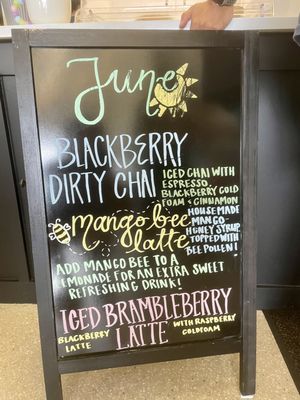 June
BLACKBERRY
DIRTY CHAI
ICED CHAI WITH
ESPRESSO,
BLACKBERRY COLD
FOAM & CINNAMON
mango bee
latte
HOUSE MADE
MANGO
HONEY SYRUP
TOPPED WITH
BEE POLLEN!
ADD MANGO BEE TO A
LEMONADE FOR AN EXTRA SWEET
REFRESHING DRINK!
ICED BRAMBLEBERRY
LATTE
BLACKBERRY
LATTE
WITH RASPBERRY
COLDFOAM